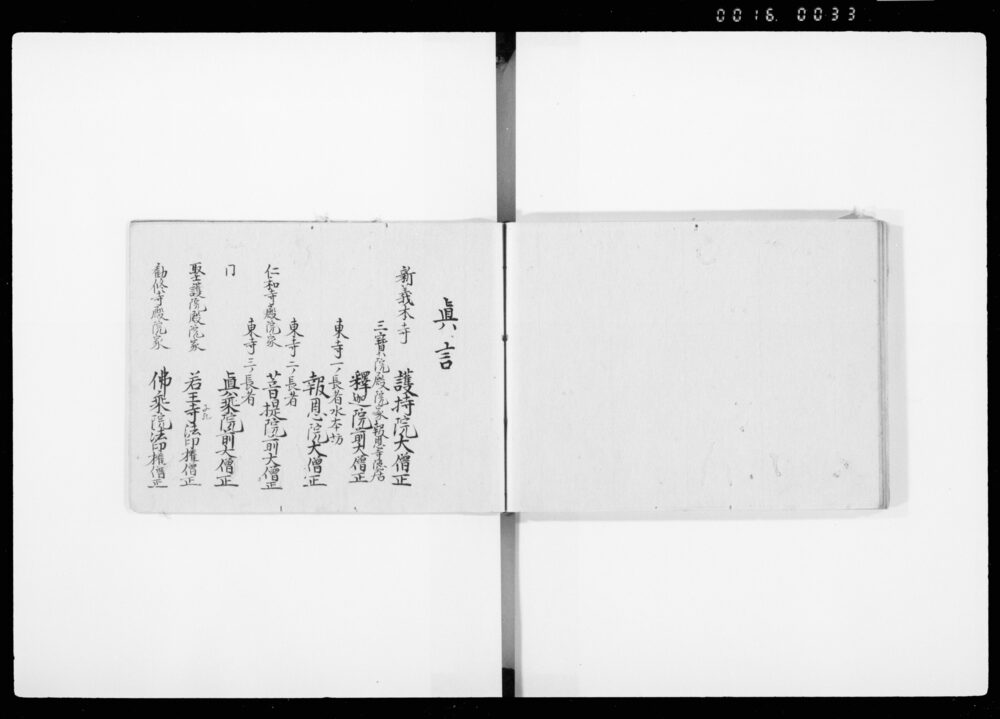 0016 0033
眞言
新義本寺
護持院大僧正
三寶院殿院家報恩寺隠居
釋迦院前大僧正
東寺一ノ長者水本坊
報恩院大僧正
東寺二ノ長者
仁和寺殿院家
菩提院前大僧正
東寺三ノ長者
同
眞乘院前大僧正
聖護院殿院家
若王寺法印権僧正
勧修寺殿院家
佛乘院法印権僧正